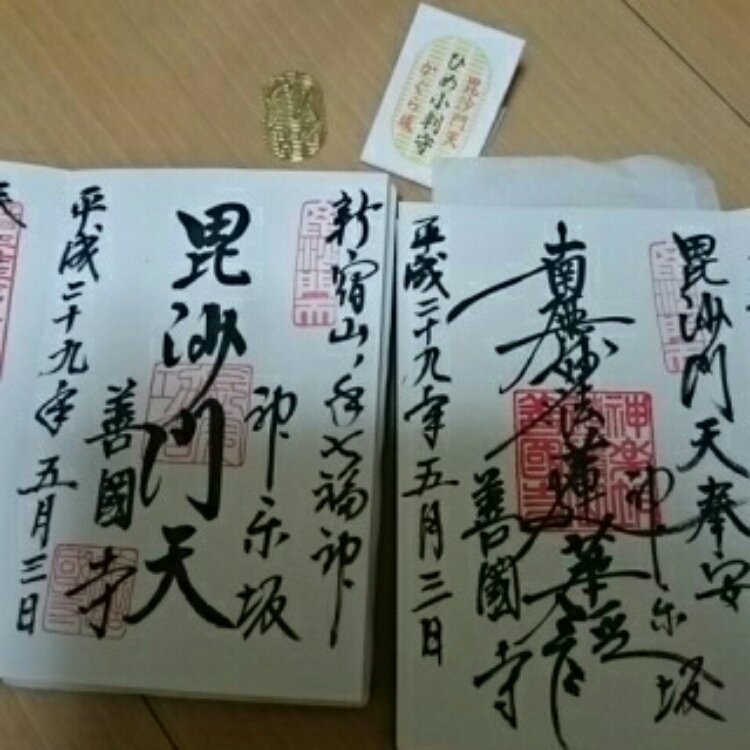 毘沙門天
ひめ小判守
かぐら坂
新宿山ノ手七福神
毘沙門天
神楽坂
善國寺
平成二十九年五月三日
毘沙門天奉安
南無妙法蓮華経
神楽坂
善國寺
平成二十九年五月三日